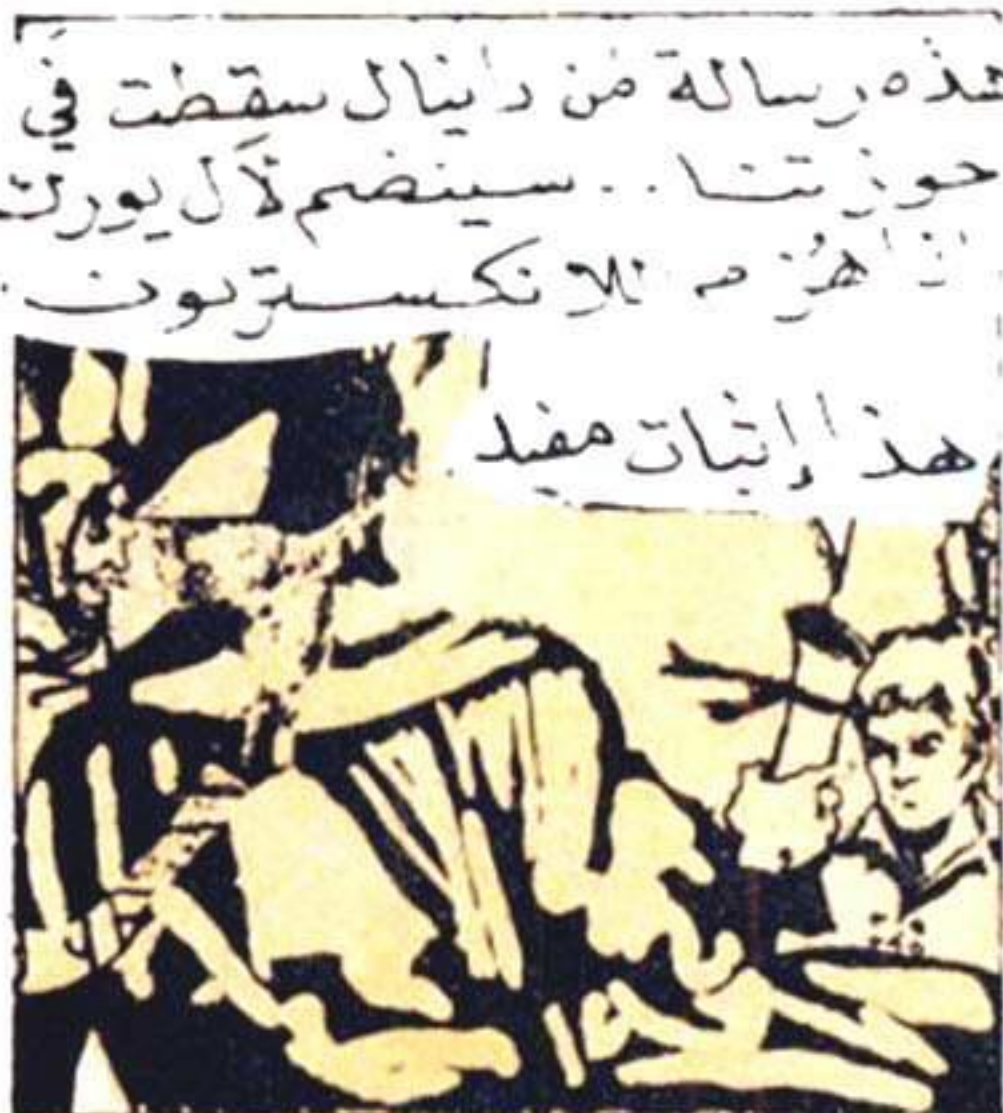 هذه رسالة من دانيال سقطت في
حوزتنا .. سينضم لآل يورك
إذا هُزم اللانكستريون .
هذا إثبات مفيد .